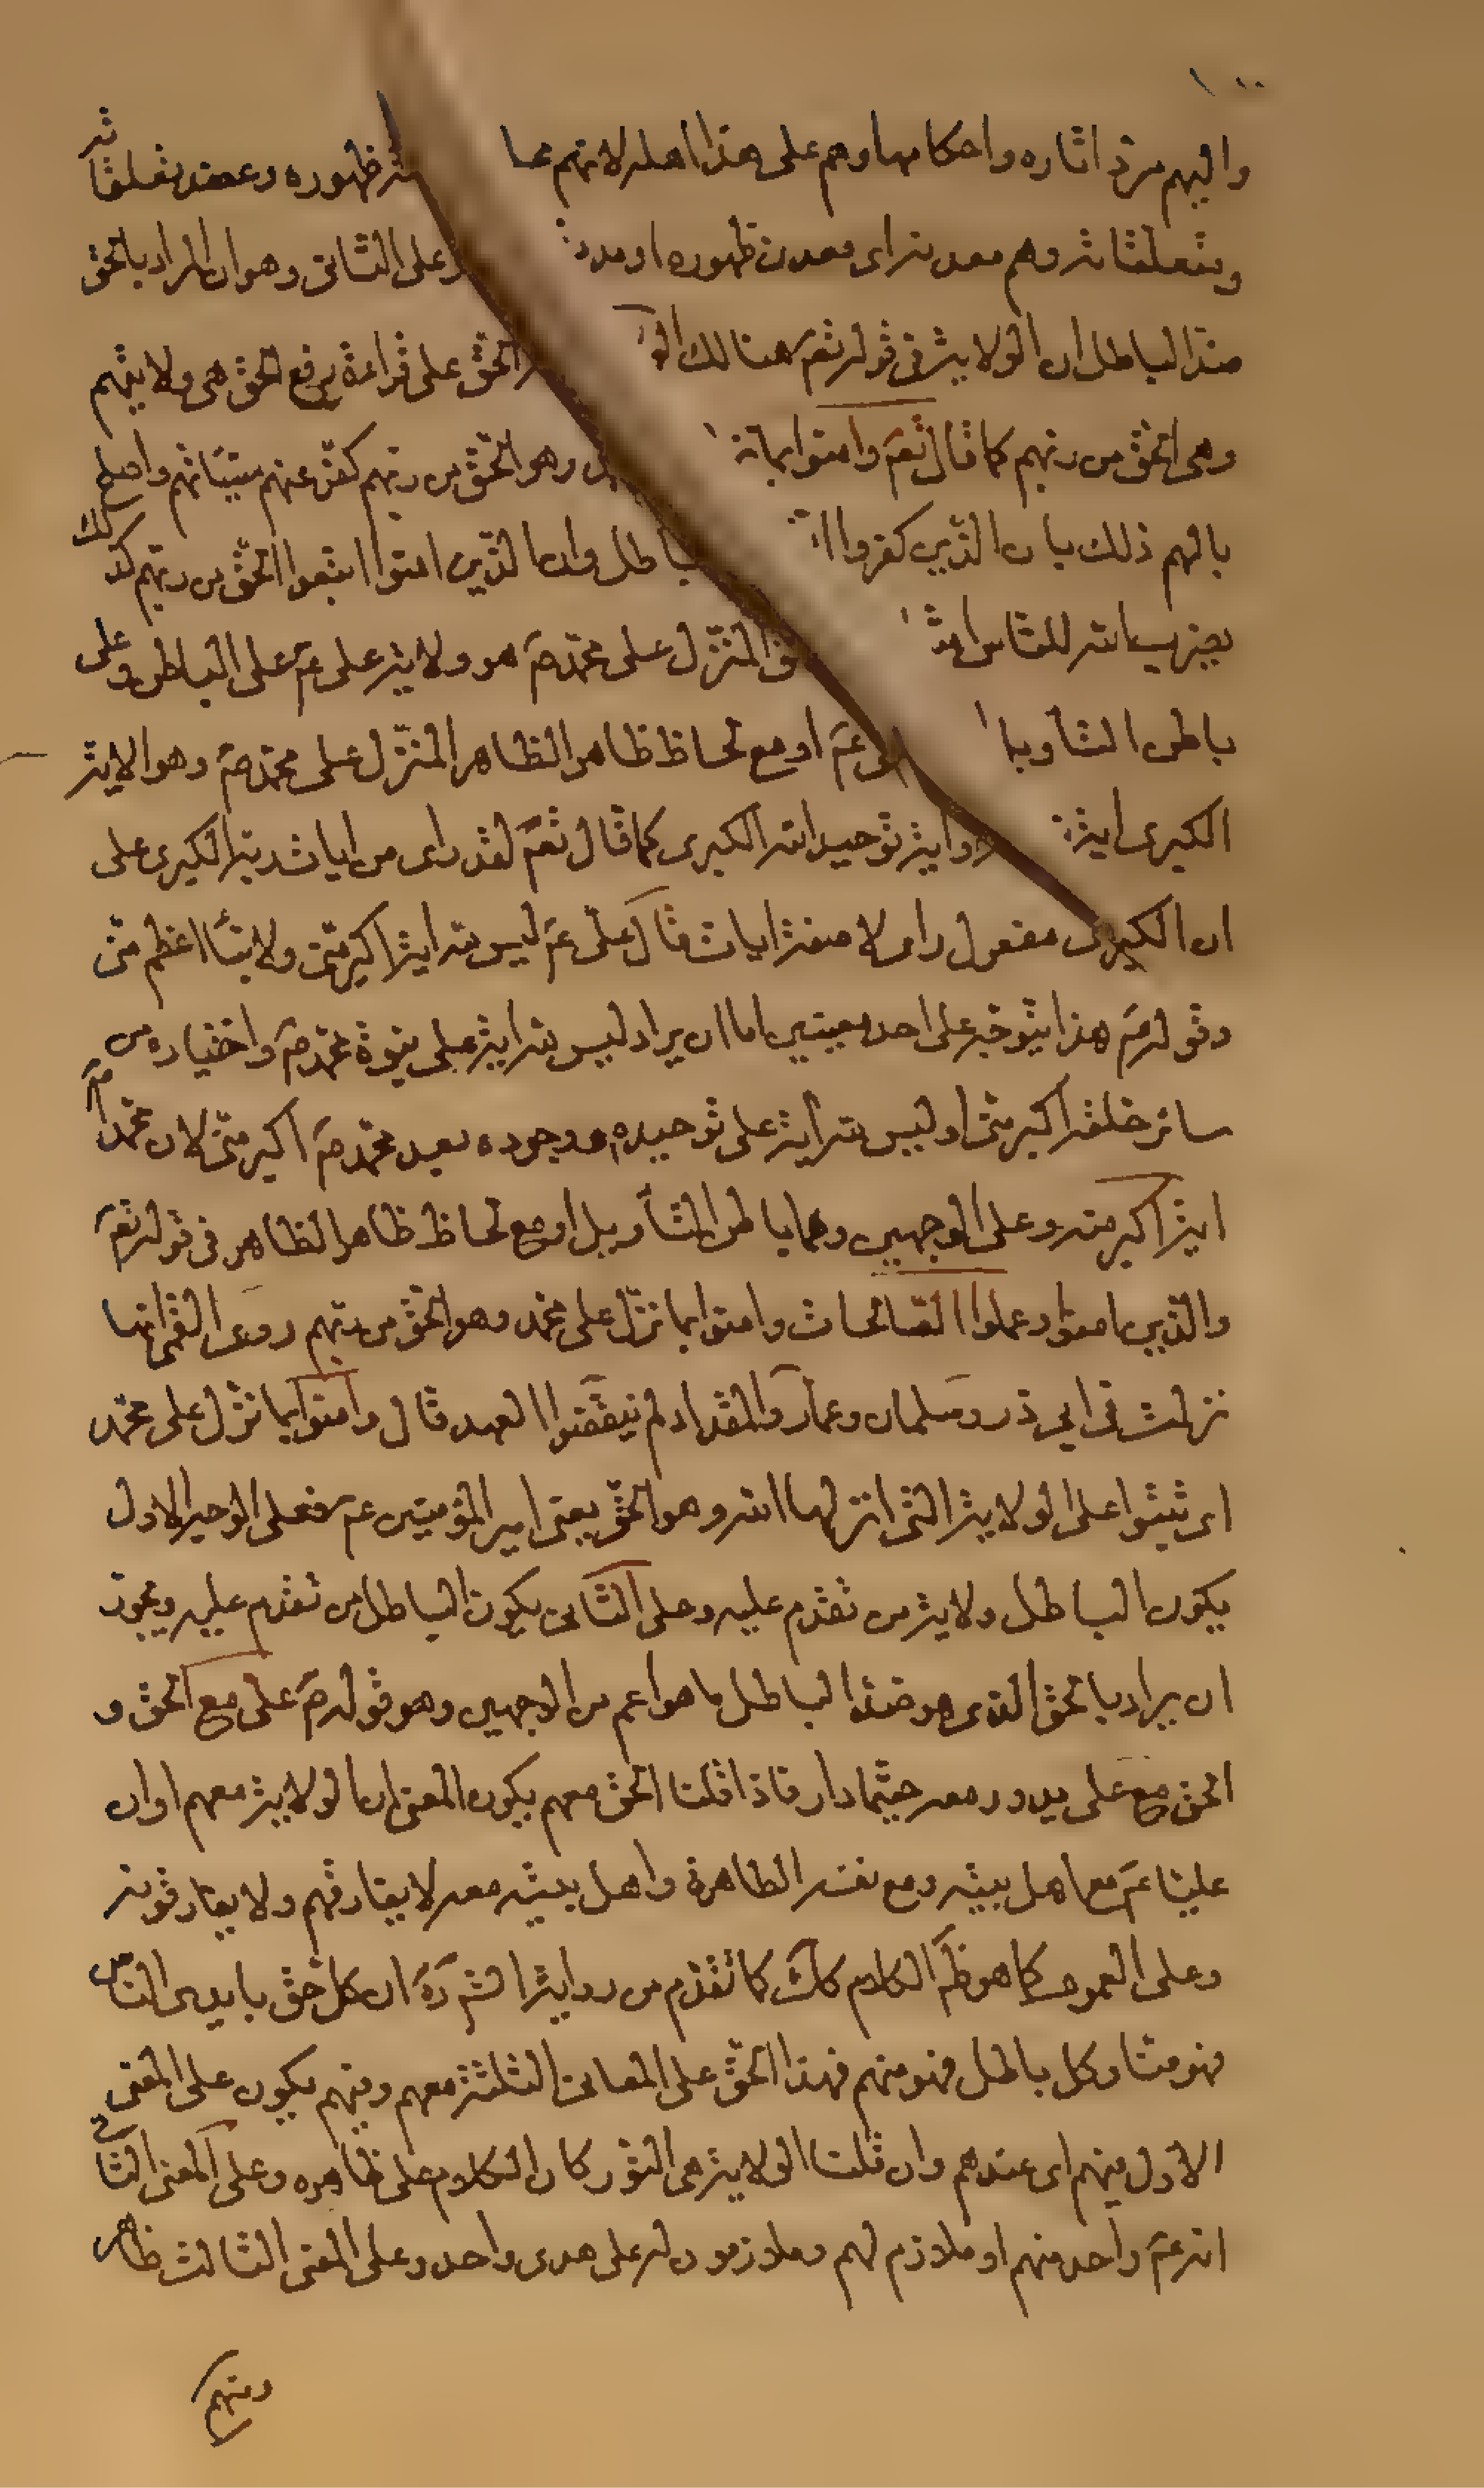 ١٠٠
واليهم مرد اثاره واحكامها وهم على هذا اهله لانهم محا ظهوره وعضد تعلقاته
ومتعلقاته وهم معدنه اى معدن ظهوره او مدد على الثانى وهو ان المراد بالحق
ضد الباطل ان الولاية فى قوله تعم هنالك الو الحق على قراءة برفع الحق هى ولايتهم
وهى الحق من ربهم كما قال تعم وامنوا بما نز وهو الحق من ربهم كفر عنهم سيئاتهم واصلح
بالهم ذلك بان الذين كفروا ا باطل وان الذين امنوا اتبعوا الحق من ربهم كذلك
يضرب الله للناس امثا المنزل على محمد صم هو ولاية على عم على الباطن وعلى
باطن التاويل عم او مع لحاظ ظاهر الظاهر المنزل على محمد صم وهو الاية
الكبرى اية واية توحيد الله الكبرى كما قال تعم لقد راى من ايات ربه الكبرى على
ان الكبرى مفعول راى لا صفة ايات قال على عم ليس لله اية اكبر منى ولا نبأ اعظم منى
وقوله عم هذا يتوجه على احد معنيين اما ان يراد ليس لله اية على نبوة محمد صم واختياره من
سائر خلقه اكبر منى او ليس لله اية على توحيده ووجوده بعد محمد صم اكبر منى لان محمدا صم
اية اكبر منه وعلى الوجهين وهما باطن التأويل او مع لحاظ ظاهر الظاهر فى قوله تعم
والذين امنوا وعملوا الصالحات وامنوا بما نزل على محمد وهو الحق من ربهم روى القمى انها
نزلت فى ابى ذر وسلمان وعمار والمقداد لم ينقضوا العهد قال وامنوا بما نزل على محمد
اى ثبتوا على الولاية التى انزلها الله وهو الحق يعنى امير المؤمنين عم فعلى الوجه الاول
يكون الباطل ولاية من تقدم عليه وعلى الثانى يكون الباطل من تقدم عليه ويجوز
ان يراد بالحق الذى هو ضد الباطل ما هو اعم من الوجهين وهو قوله صم على مع الحق و
الحق مع على يدور معه حيثما دار فاذا قلنا الحق معهم يكون المعنى ان الولاية معهم او ان
عليا عم مع اهل بيته ومع نفسه الطاهرة واهل بيته معه لا يفارقهم ولا يفارقونه
وعلى العموم كما هو ظم الكلام كك كما تقدم من رواية الثم ره ان كل حق بايدى الناس
فهو منا وكل باطل فهو منهم فهذا الحق على المعانى الثلثة معهم وفيهم يكون على المعنى
الاول فيهم اى عندهم وان قلنا الولاية هى النور كان الكلام على ظاهره وعلى المعنى الثانى
انه عم واحد منهم او ملازم لهم وملازمون له على هدى واحد وعلى المعنى الثالث ظاهر
ومنهم